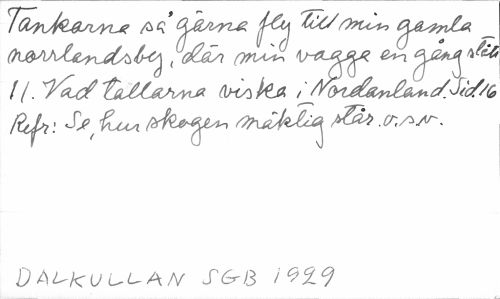 Tankarna så gärna fly till min gamla
norrlandsby, där min vagge en gång stått
11. Vad tallarna viska i Nordanland. Sid. 16
Refr: Se, hur skogen mäktig står. o.s.v.
DALKULLAN SGB 1929